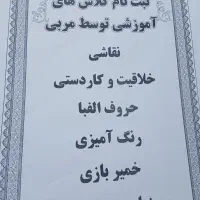 ثبت نام کلاس های
آموزشی توسط مربی
نقاشی
خلاقیت و کاردستی
حروف الفبا
رنگ آمیزی
خمیر بازی